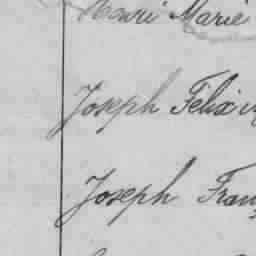 Henri Marie
Joseph Félix
Joseph Fran